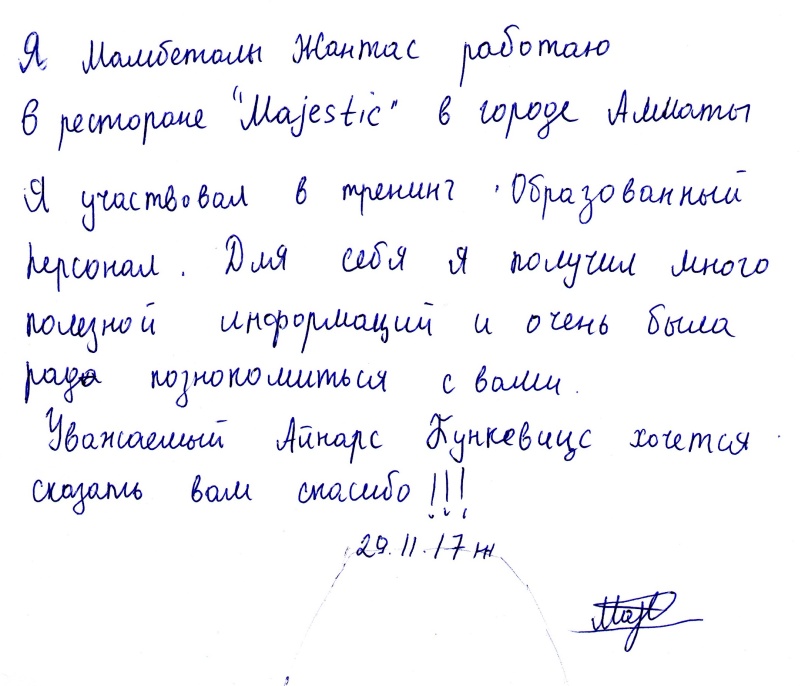 Я Мамбеталы Жантас работаю
в ресторане "Majestic" в городе Алматы
Я участвовал в тренинг "Образованный
персонал. Для себя я получил много
полезной информаций и очень была
рада познопомиться с вами.
Уважаемый Айнарс Кункевицс хочется
сказать вам спасибо!!!
29.11.17ж